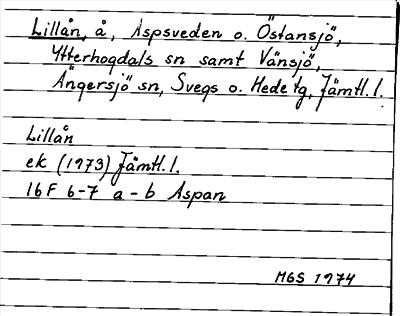 Lillån, å, Aspsveden o. Östansjö,
Ytterhogdals sn samt Vänsjö,
Ängersjö sn, Svegs o. Hede tg, Jämtl. l.
Lillån
ek (1973) Jämtl. l.
16F 6-7 a-b Aspan
MGS 1974